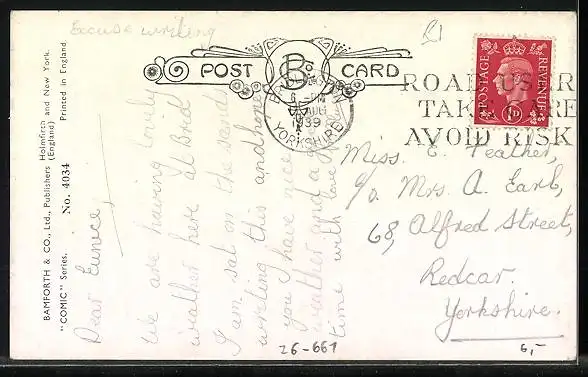 Excuse writing
£1
BAMFORTH & CO., Ltd., Publishers Holmfirth and New York.
(England)
Printed in England.
"COMIC" Series.
No. 4034
POST CARD
B
Co
6 - PM
AUG
1939
YORKSHIRE
ROAD USER
TAKE CARE
AVOID RISK
POSTAGE
REVENUE
1D
Dear Eunice,
We are having lovely
weather here at Brid
I am sat on the sand
writing this and hope
you have nice
weather and a
time with love
Miss. E. Feather,
c/o Mrs. A. Earl,
68, Alfred Street,
Redcar.
Yorkshire.
26-661
6,-